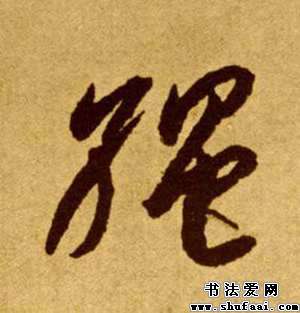 繩
书法爱网
www.shufaai.com